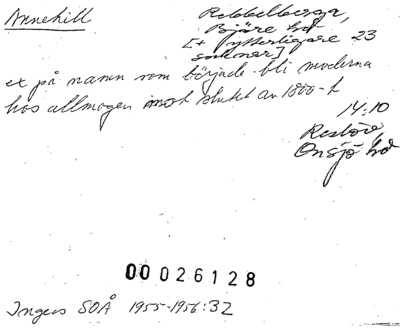 Annehill
Rebbelberga,
Bjäre hd
[+ ytterligare 23
socknar]
ex på namn som började bli moderna
hos allmogen mot slutet av 1800-t
14:10
Reslöv
Onsjö hd
00026128
Ingers SOÅ 1955-1956:32